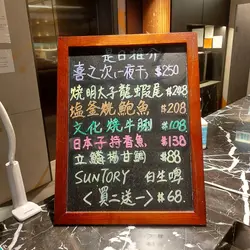 是日推介
喜之次一夜干 $250
燒明太子龍蝦尾 $248
塩釜燒鮑魚 $208
文化燒牛脷 $108
日本子持香魚 $138
立鱗揚甘鯛 $88
SUNTORY 白生啤
<買二送一> $68.